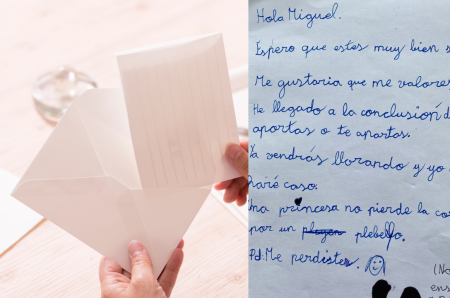 Hola Miguel.
Espero que estes muy bien
Me gustaria que me valores
He llegado a la conclusión d
aportas o te apartas.
Ya vendrás llorando y yo
haré caso.
Una princesa no pierde la co
por un playen plebello.
Pd: Me perdistes.
(No
ens